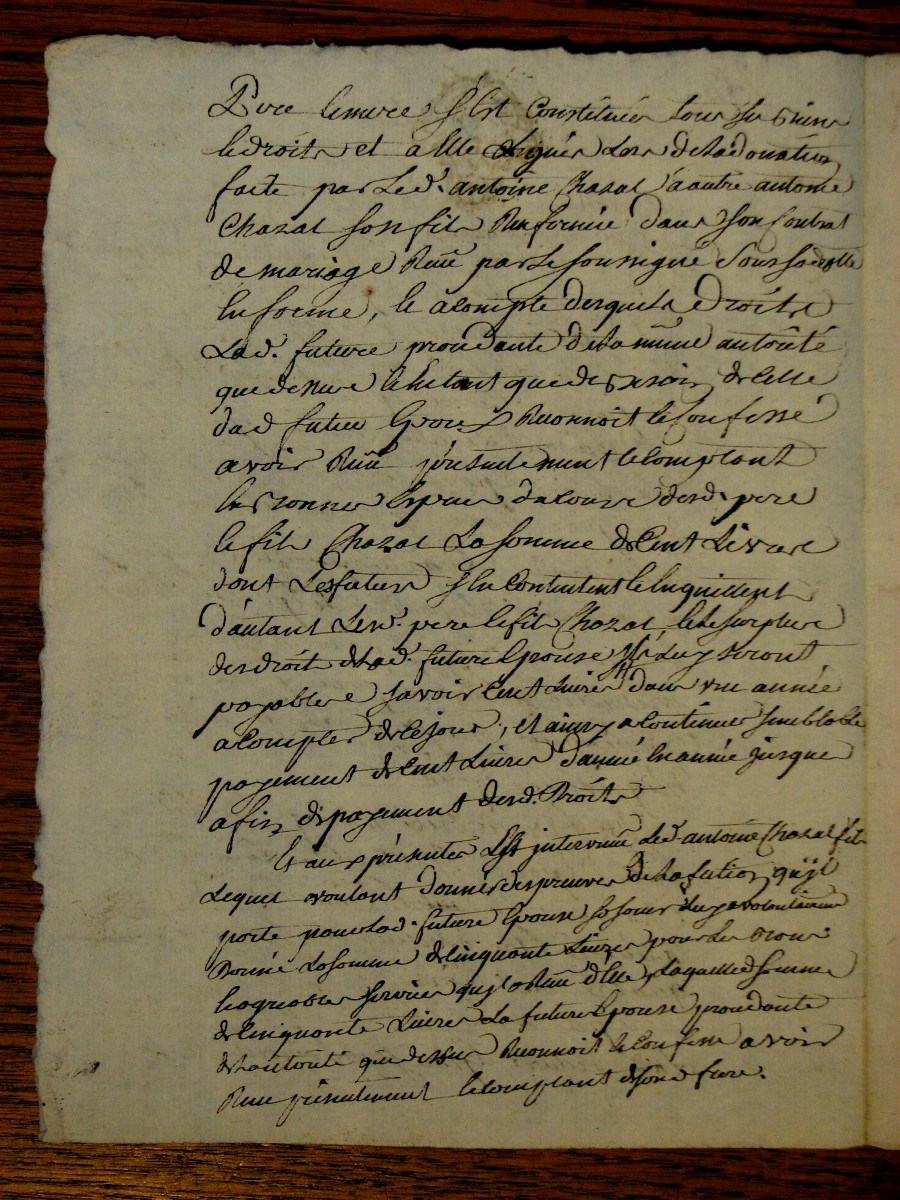 Pere & mere s'est Constituée tous ses biens
& droits et a elle dus lors de la donation
faite par le d. antoine Chazal à autre antoine
Chazal son fils Renfermée dans son Contrat
de mariage Reçu par le soussigné sous sa datte
En forme, & a Compte desquels droits
Lad. future procedante de la meme autorité
que dessus & en tant que de besoin de celle
dud futur Epoux Reconnoit & Confesse
avoir Reçu presentement & Comptant
En bonnes Especes de Cours desd. pere
& fils Chazal La somme de Cent Livres
dont Les futurs s'en Contentent & En quittent
d'autant Lesd. pere & fils Chazal, & le surplus
des droits de lad. future Epouse Luy seront
payables savoir Cent Livres dans une année
a Compter de Ce jour, et ainsy a Continuer semblable
payement de Cent Livres d'année En année jusques
a fin de payement desd. Droits
Et aux présentes Est intervenu led antoine Chazal fils
Lequel voulant donner des preuves de l'affection qu'jl
porte pour lad. future Epouse sa soeur Luy a volontairement
Donné La somme de Cinquante Livres pour Les bons
& agreables services qu'jl a Reçu d'Elle, Laquelle somme
de Cinquante Livres La future Epouse procedante
de l'autorité que dessus Reconnoit & Confesse avoir
Reçue présentement & Comptant de sond frere.